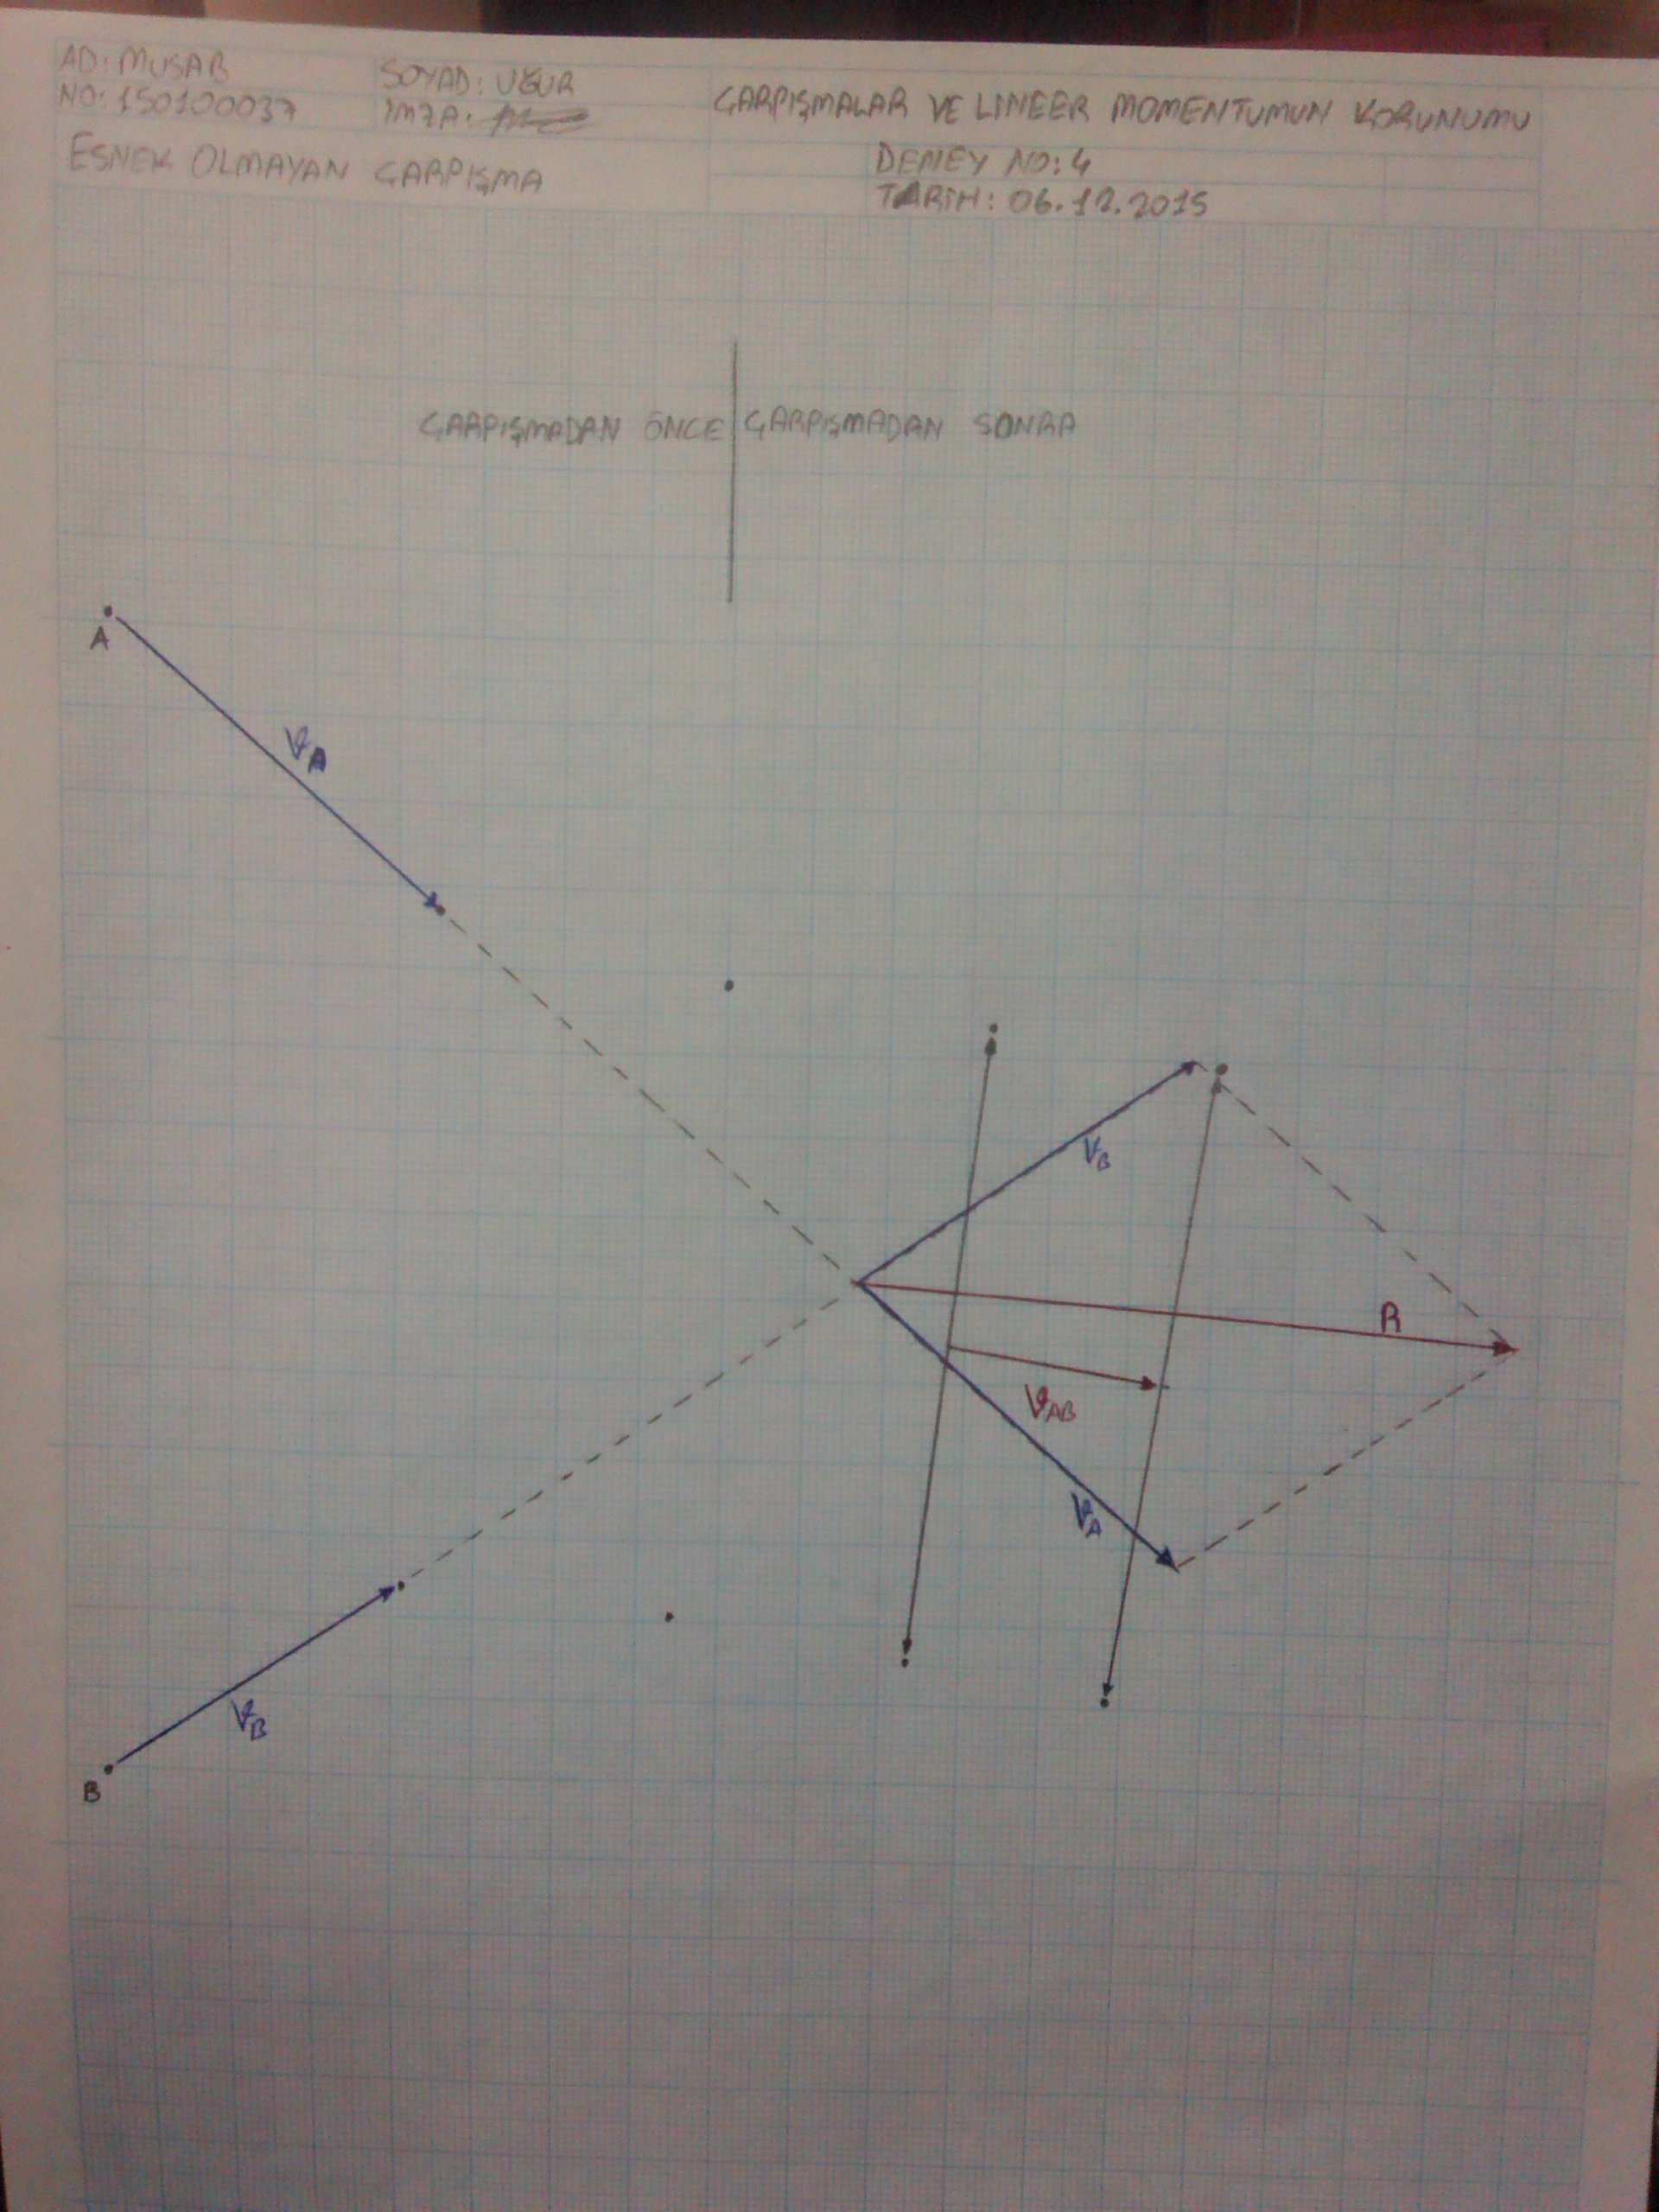 AD: MUSAB
SOYAD: UĞUR
NO: 150100037
İMZA:
ÇARPIŞMALAR VE LİNEER MOMENTUMUN KORUNUMU
ESNEK OLMAYAN ÇARPIŞMA
DENEY NO: 4
TARİH: 06.12.2015
ÇARPIŞMADAN ÖNCE
ÇARPIŞMADAN SONRA
A
VA
VB
R
VAB
VA
VB
B